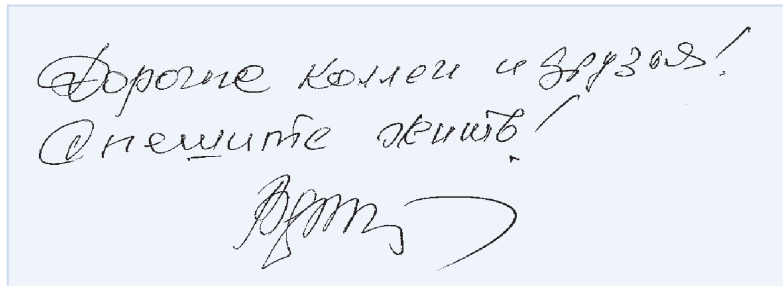 Дорогие коллеги и друзья!
Спешите жить!